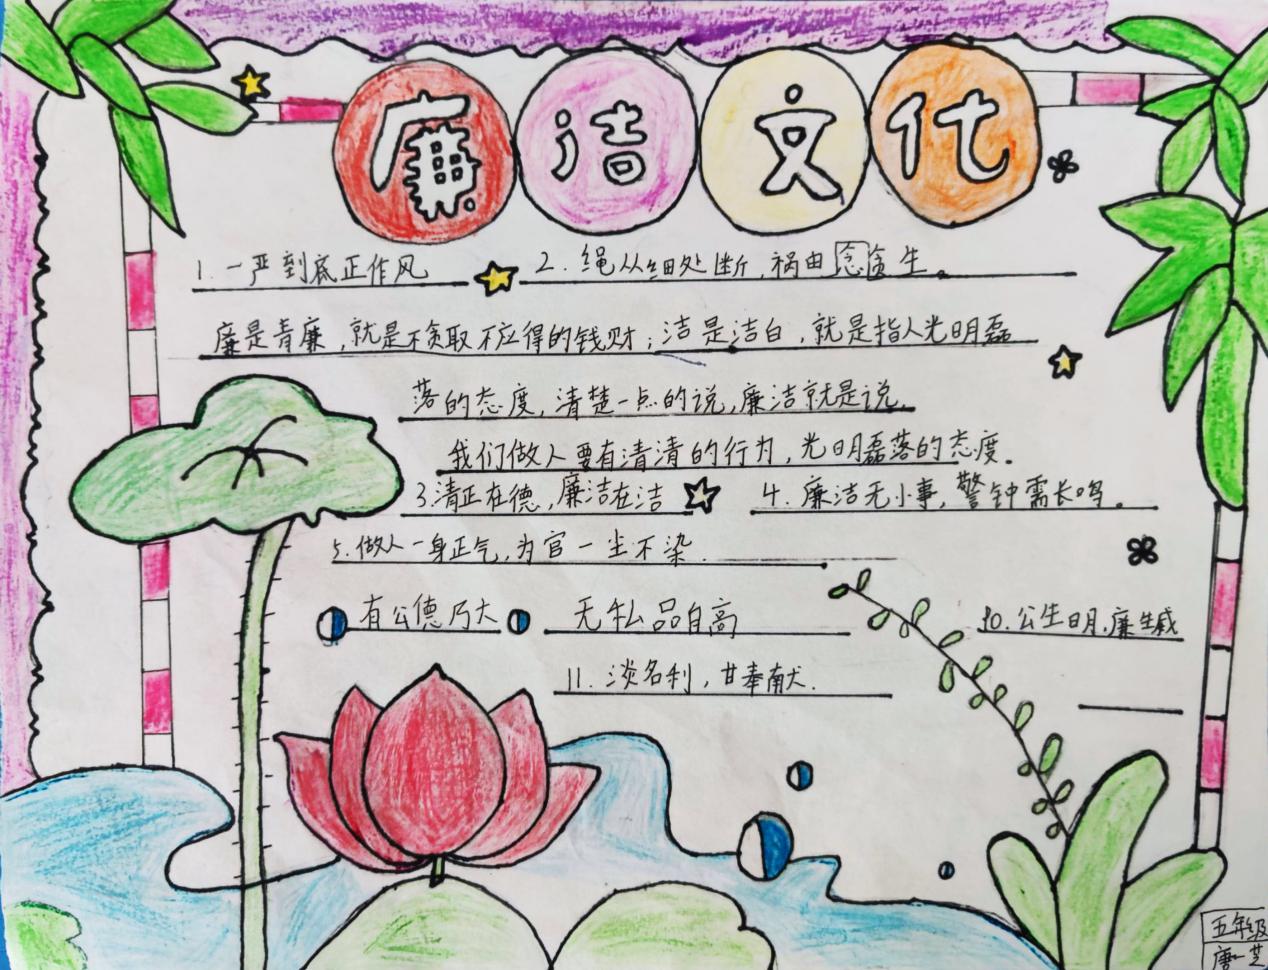 廉洁文化
1.一严到底正作风
2.绳从细处断,祸由念贪生。
廉是青廉,就是不贪取不应得的钱财;洁是洁白,就是指人光明磊
落的态度,清楚一点的说,廉洁就是说,
我们做人要有清清的行为,光明磊落的态度。
3.清正在德,廉洁在洁
4.廉洁无小事,警钟需长鸣。
5.做人一身正气,为官一尘不染.
有公德乃大
无私品自高
10.公生明.廉生威
11.淡名利,甘奉献.
五年级
唐一芝